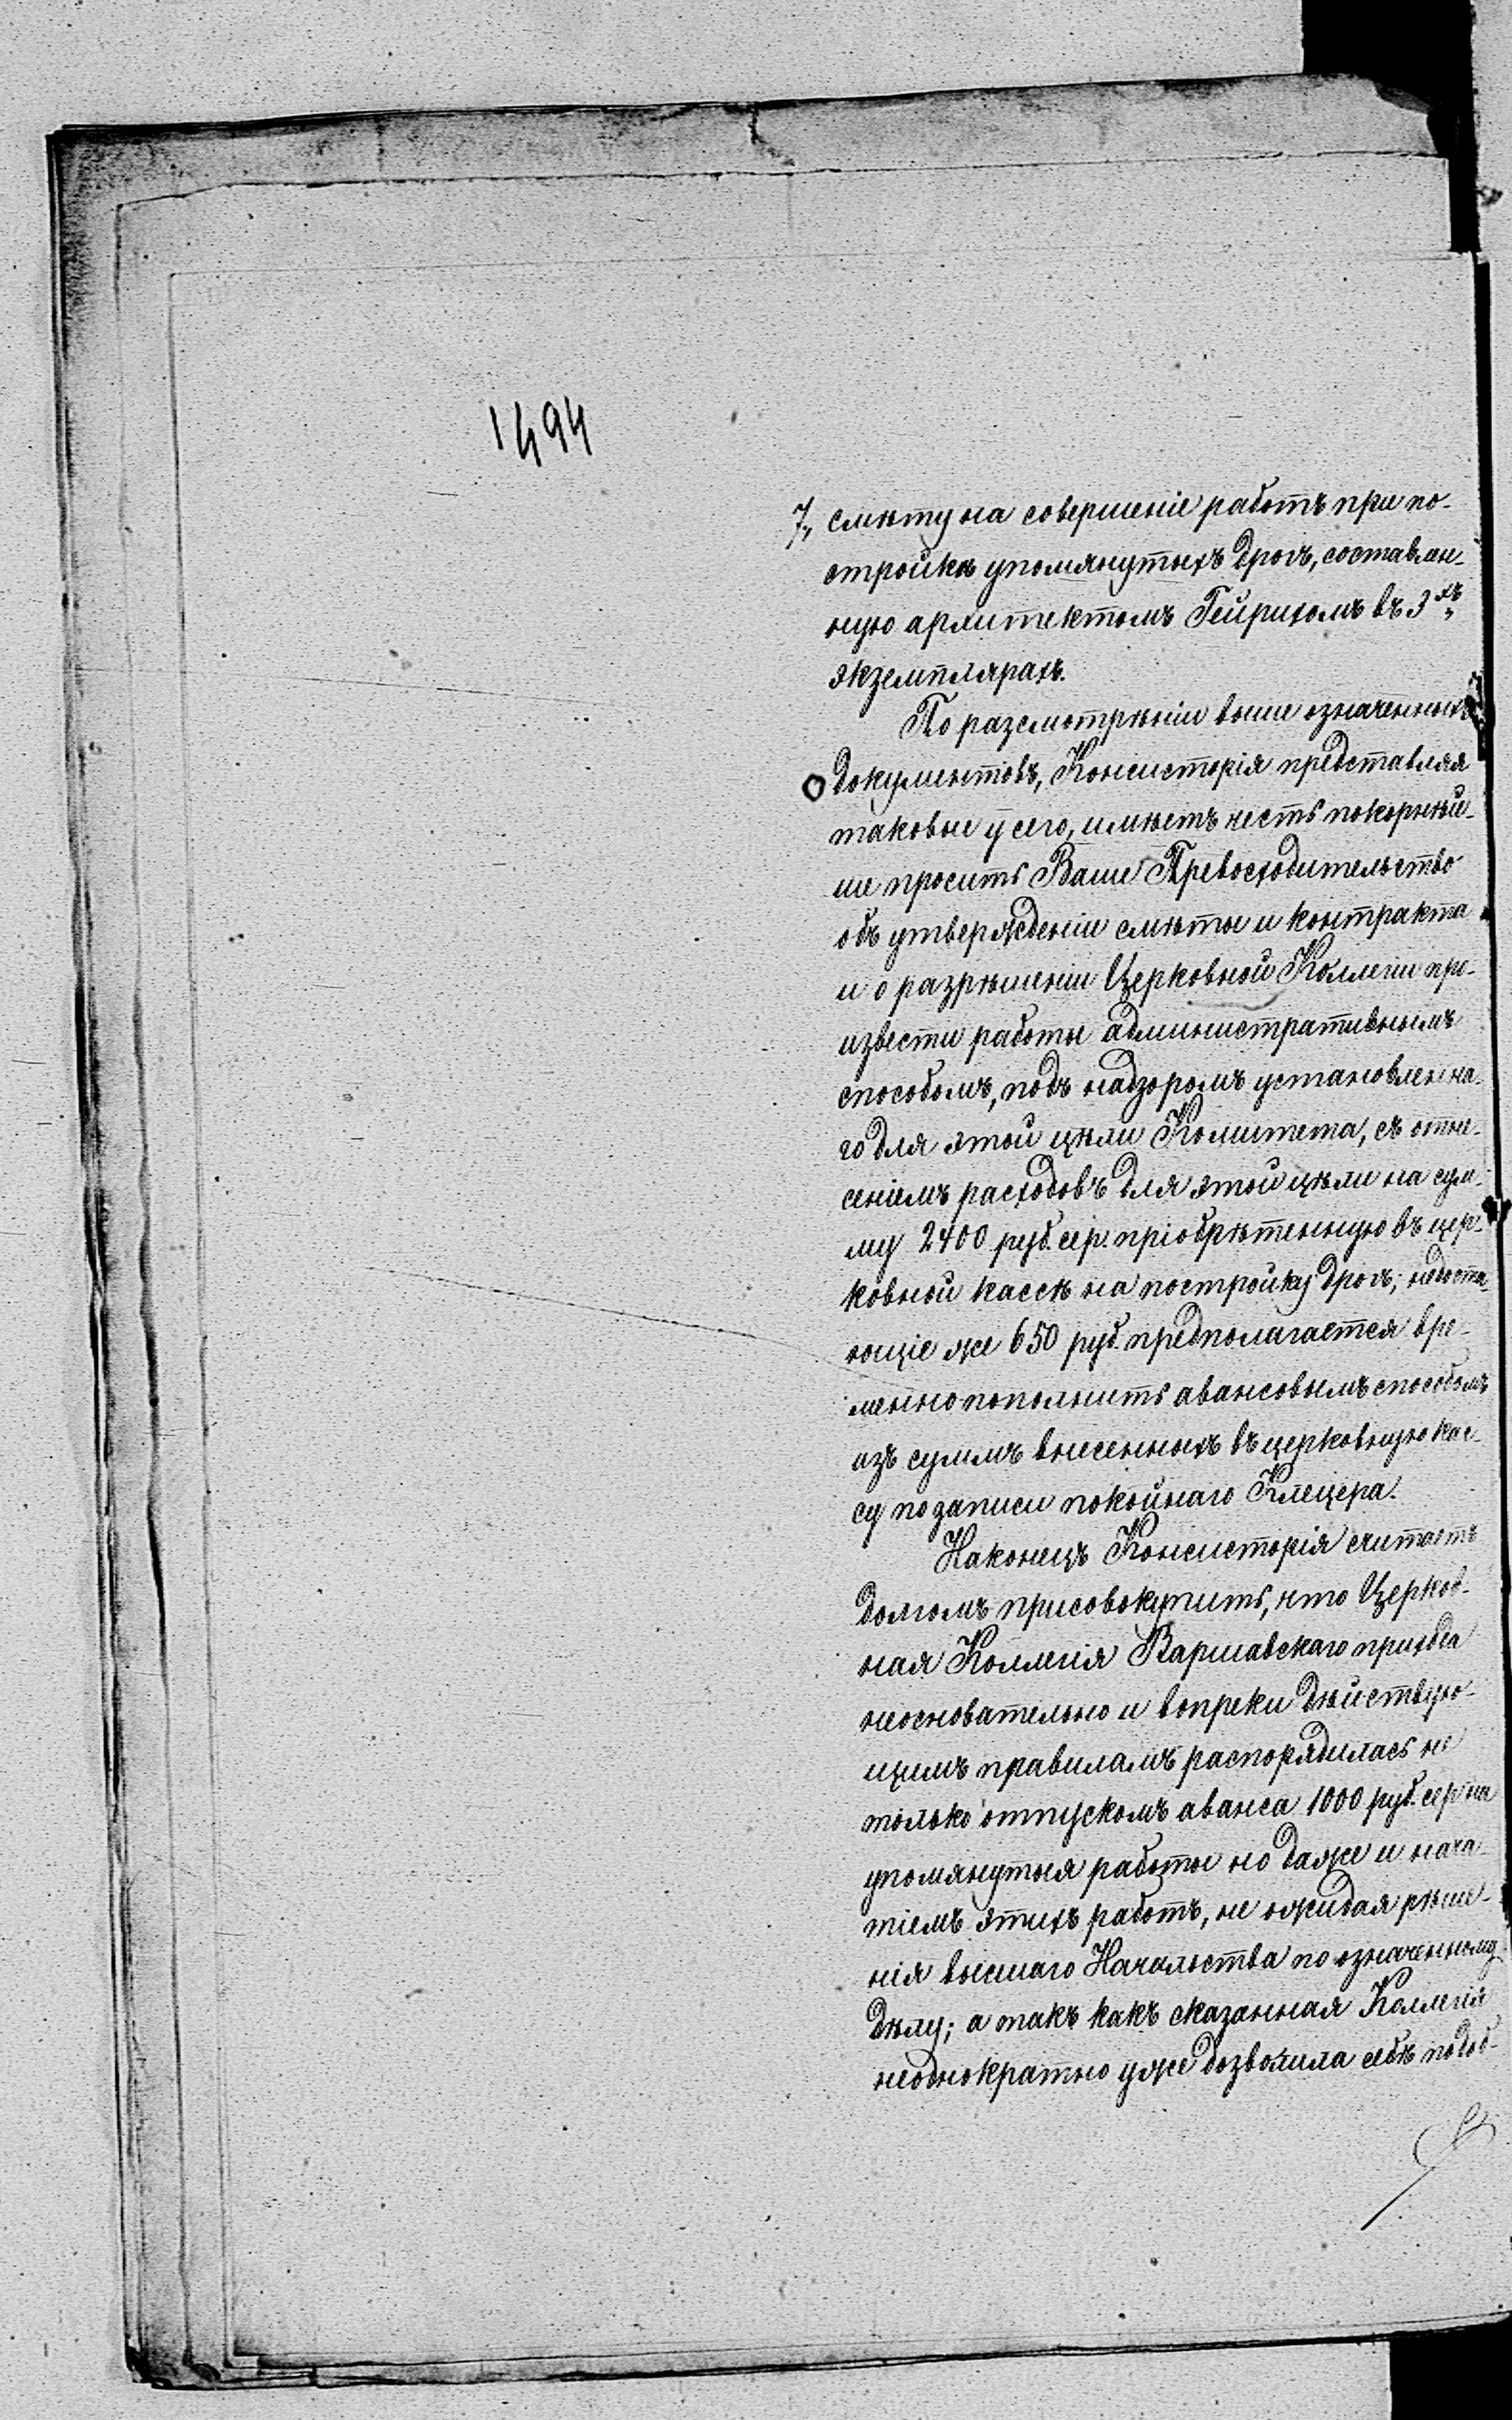 1494
7, смѣту на совершеніе работъ при по-
стройкѣ упомянутыхъ дрогъ, составлен-
ную архитектомъ Гейрихомъ въ 3хъ
экземплярахъ.
По разсмотрѣніи выше означенныхъ
документовъ, Консисторія представляя
таковые у сего, имѣетъ честь покорнѣй-
ше просить Ваше Превосходительство
объ утвержденіи смѣты и контракта
и о разрѣшеніи Церковной Коллегіи про-
извести работы административнымъ
способомъ, подъ надзоромъ установленна-
го для этой цѣли Комитета, съ отне-
сеніемъ расходовъ для этой цѣли на сум-
му 2400 руб. сер. пріобрѣтенную въ цер-
ковной кассѣ на постройку дрогъ; недоста-
ющіе же 650 руб. предполагается вре-
менно пополнить авансовымъ способомъ
изъ суммъ внесенныхъ въ церковную кас-
су по записи покойнаго Клецера.
Наконецъ Консисторія считаетъ
долгомъ присовокупить, что Церков-
ная Коллегія Варшавскаго прихода
неосновательно и вопреки дѣйствую-
щимъ правиламъ распорядилась не
только отпускомъ аванса 1000 руб. сер. на
упомянутыя работы но даже и нача-
тіемъ этихъ работъ, не ожидая рѣше-
нія высшаго Начальства по означенному
дѣлу; а такъ какъ сказанная Коллегія
неоднократно уже дозволила себѣ подоб-